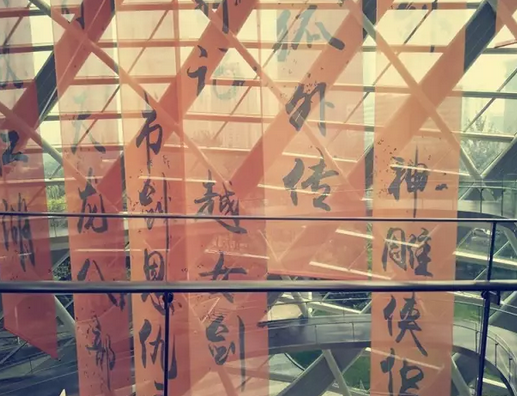 江湖
天龙八部
书剑恩仇
记
越女剑
狐外传
神雕侠侣